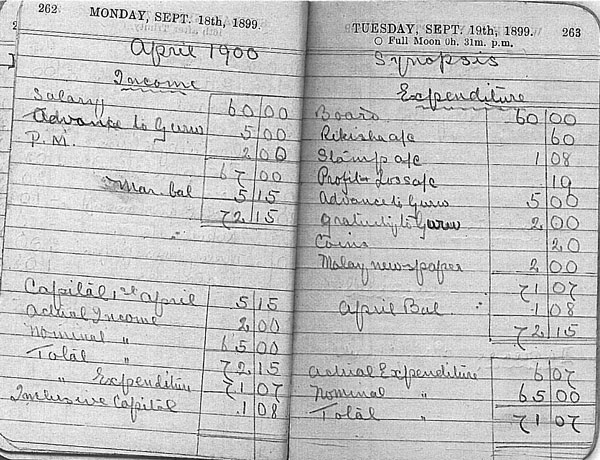 262 MONDAY, SEPT. 18th, 1899.
April 1900
Income
Salary 60 00
Advance to Guru 5 00
P.M. 2 00
67 00
Mar. bal 5 15
72 15
Capital, 1st April 5 15
Actual Income 2 00
Nominal " 65 00
Total " 72 15
" Expenditure 71 07
Inclusive Capital 1 08
TUESDAY, SEPT. 19th, 1899. 263
Full Moon 0h. 31m. p.m.
Synopsis
Expenditure
Board 60 00
Rikisha a/c 60
Stamp a/c 1 08
Profit & Loss a/c 19
Advance to Guru 5 00
Gratuity to Guru 2 00
Coins 20
Malay newspaper 2 00
71 07
April Bal 1 08
72 15
Actual Expenditure 6 07
Nominal " 65 00
Total " 71 07